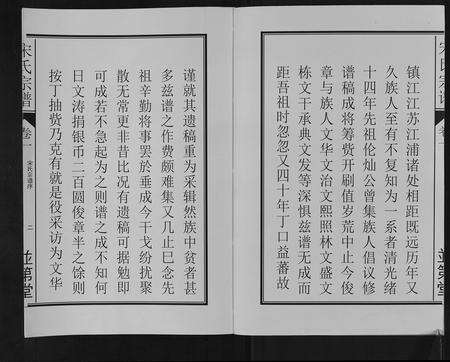 宋氏宗谱
卷一
並第堂
镇江江苏江浦诸处相距既远历年又
久族人至有不复知为一系者清光绪
十四年先祖伦灿公曾集族人倡议修
谱稿成将筹赀开刷值岁荒中止今俊
章与族人文华文治文熙照林文盛文
栋文干承典文发等深惧兹谱无成而
距吾祖时忽忽又四十年丁口益蕃故
谨就其遗稿重为采辑然族中贫者甚
多兹谱之作费颇难集又几止巳念先
祖辛勤将事罢於垂成今干戈纷扰聚
散无常更非昔比况有遗稿可据勉即
可成若不急起为之则谱之成不知何
日文涛捐银币二百圆俊章半之馀则
按丁抽赀乃克有就是役采访为文华
宋氏宗谱
卷一
宋氏宗谱序
二
並第堂